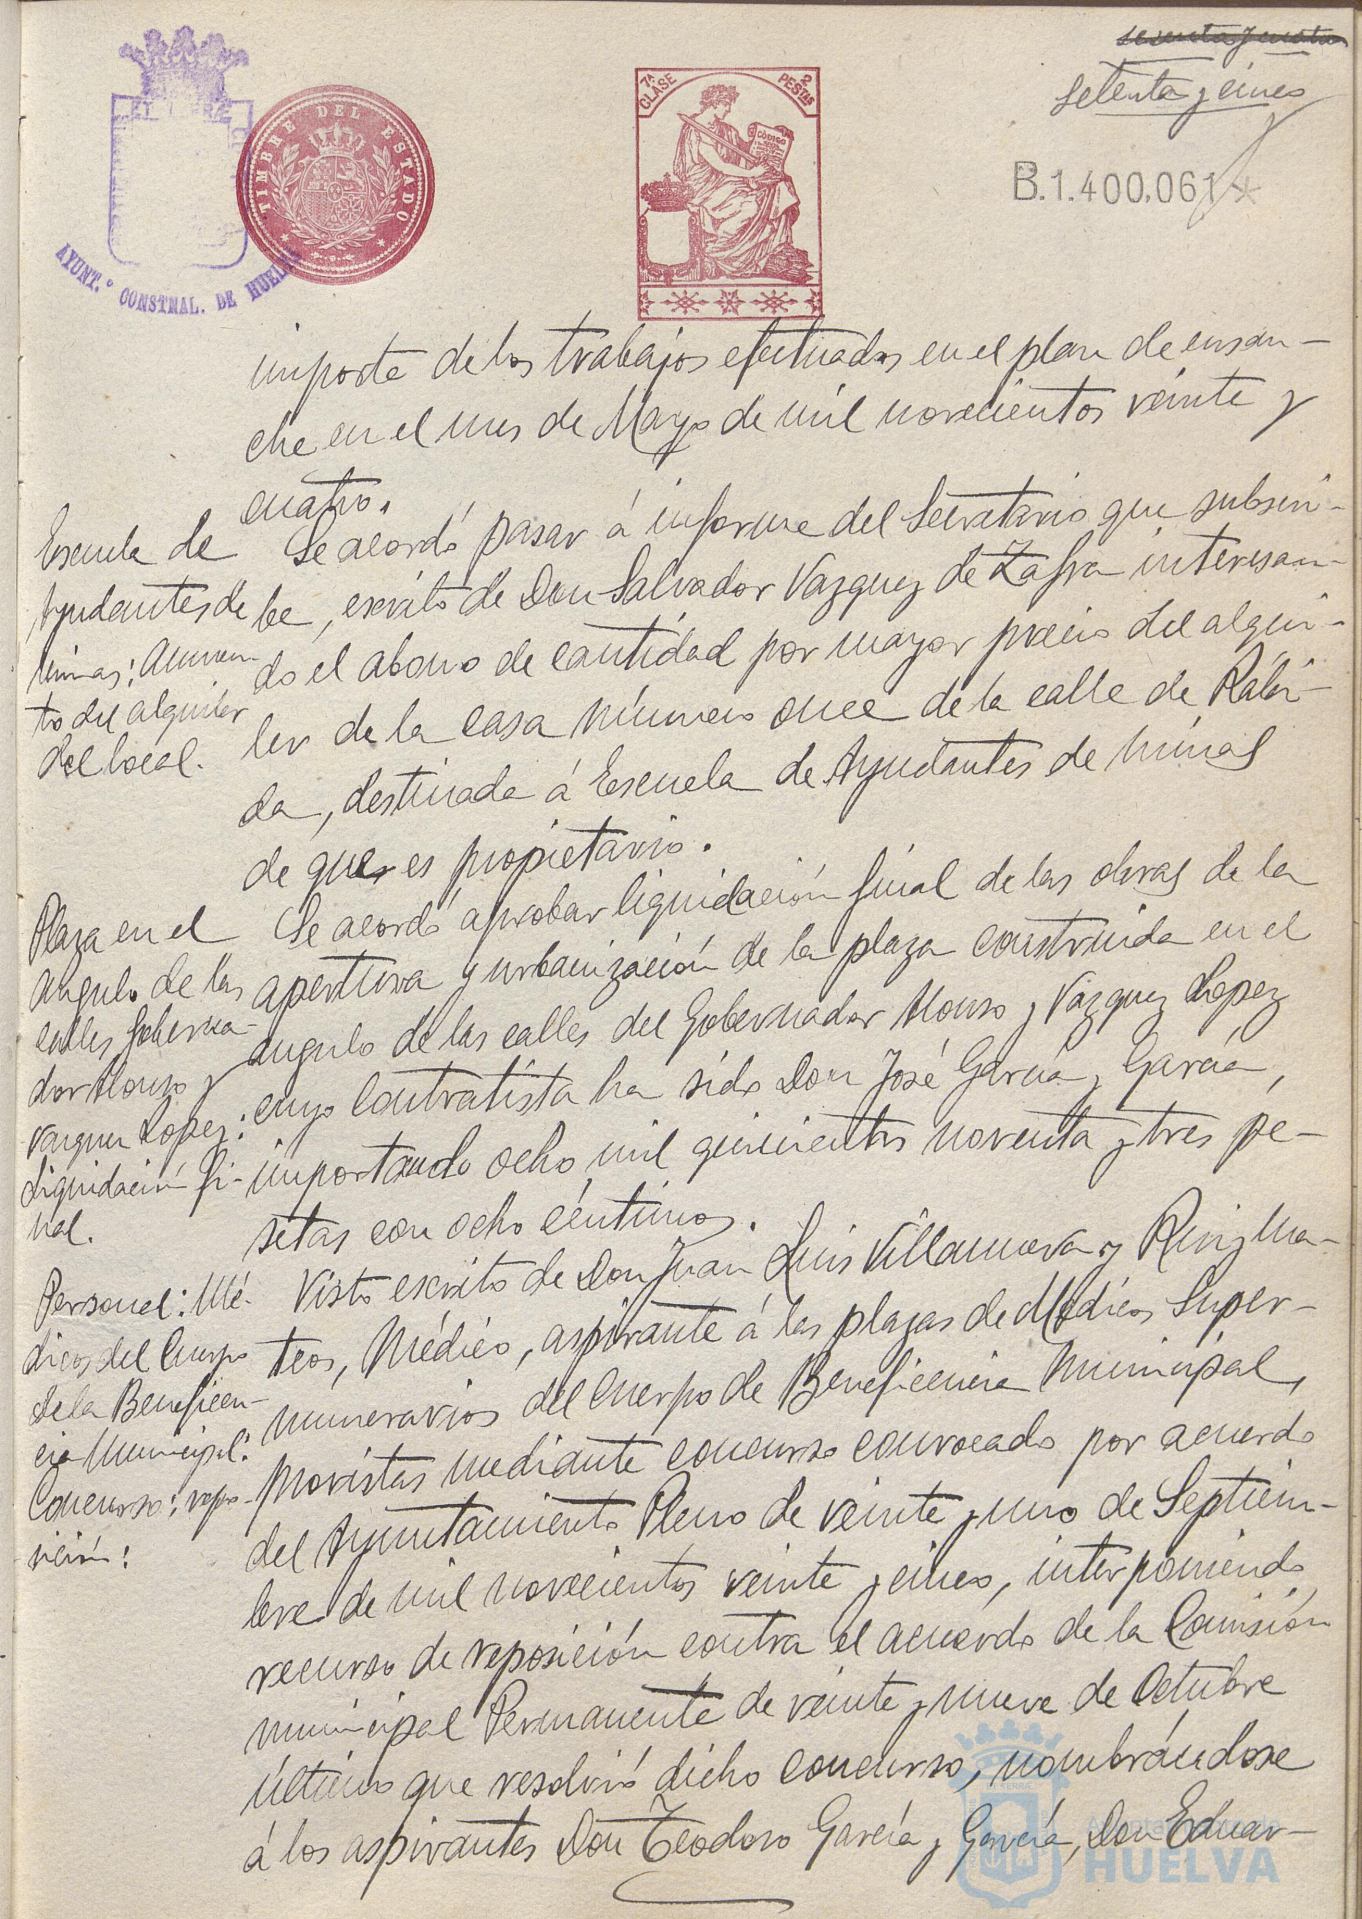 setenta y cinco
7ª CLASE
2 PESTAS
CÓDIGO
TIMBRE DEL ESTADO
B.1.400,061 *
AYUNT.º CONSTNAL. DE HUELVA
importe de los trabajos efectuados en el plan de ensan-
che en el mes de Mayo de mil novecientos veinte y
cuatro.
Escuela de
Ayudantes de
minas: Aumen-
to del alquiler
del local.
Se acordó pasar á informe del Secretario que subscri-
be, escrito de Don Salvador Vazquez de Zafra interesan-
do el abono de cantidad por mayor precio del alqui-
ler de la casa número once de la calle de Rabi-
da, destinada á Escuela de Ayudantes de minas
de que es propietario.
Plaza en el
angulo de las
calles Goberna-
dor Alonso y
Vazquez Lopez:
Liquidación fi-
nal.
Se acordó aprobar liquidación final de las obras de la
apertura y urbanización de la plaza construida en el
angulo de las calles del Gobernador Alonso y Vazquez Lopez
cuyo contratista ha sido Don José García y García,
importando ocho mil quinientas noventa y tres pe-
setas con ocho céntimos.
Personal: Mé-
dicos del Cuerpo
de la Beneficen-
cia Municipal:
Concurso: repo-
sición:
Visto escrito de Don Juan Luis Villanueva y Ruiz Ma-
teos, Médico, aspirante á las plazas de Médicos Super-
numerarios del Cuerpo de Beneficencia Municipal,
provistas mediante concurso convocado por acuerdo
del Ayuntamiento Pleno de veinte y uno de Septiem-
bre de mil novecientos veinte y cinco, interponiendo
recurso de reposición contra el acuerdo de la Comisión
municipal Permanente de veinte y nueve de Octubre
último que resolvió dicho concurso, nombrándose
á los aspirantes Don Teodoro García y García, Don Eduar-
HUELVA